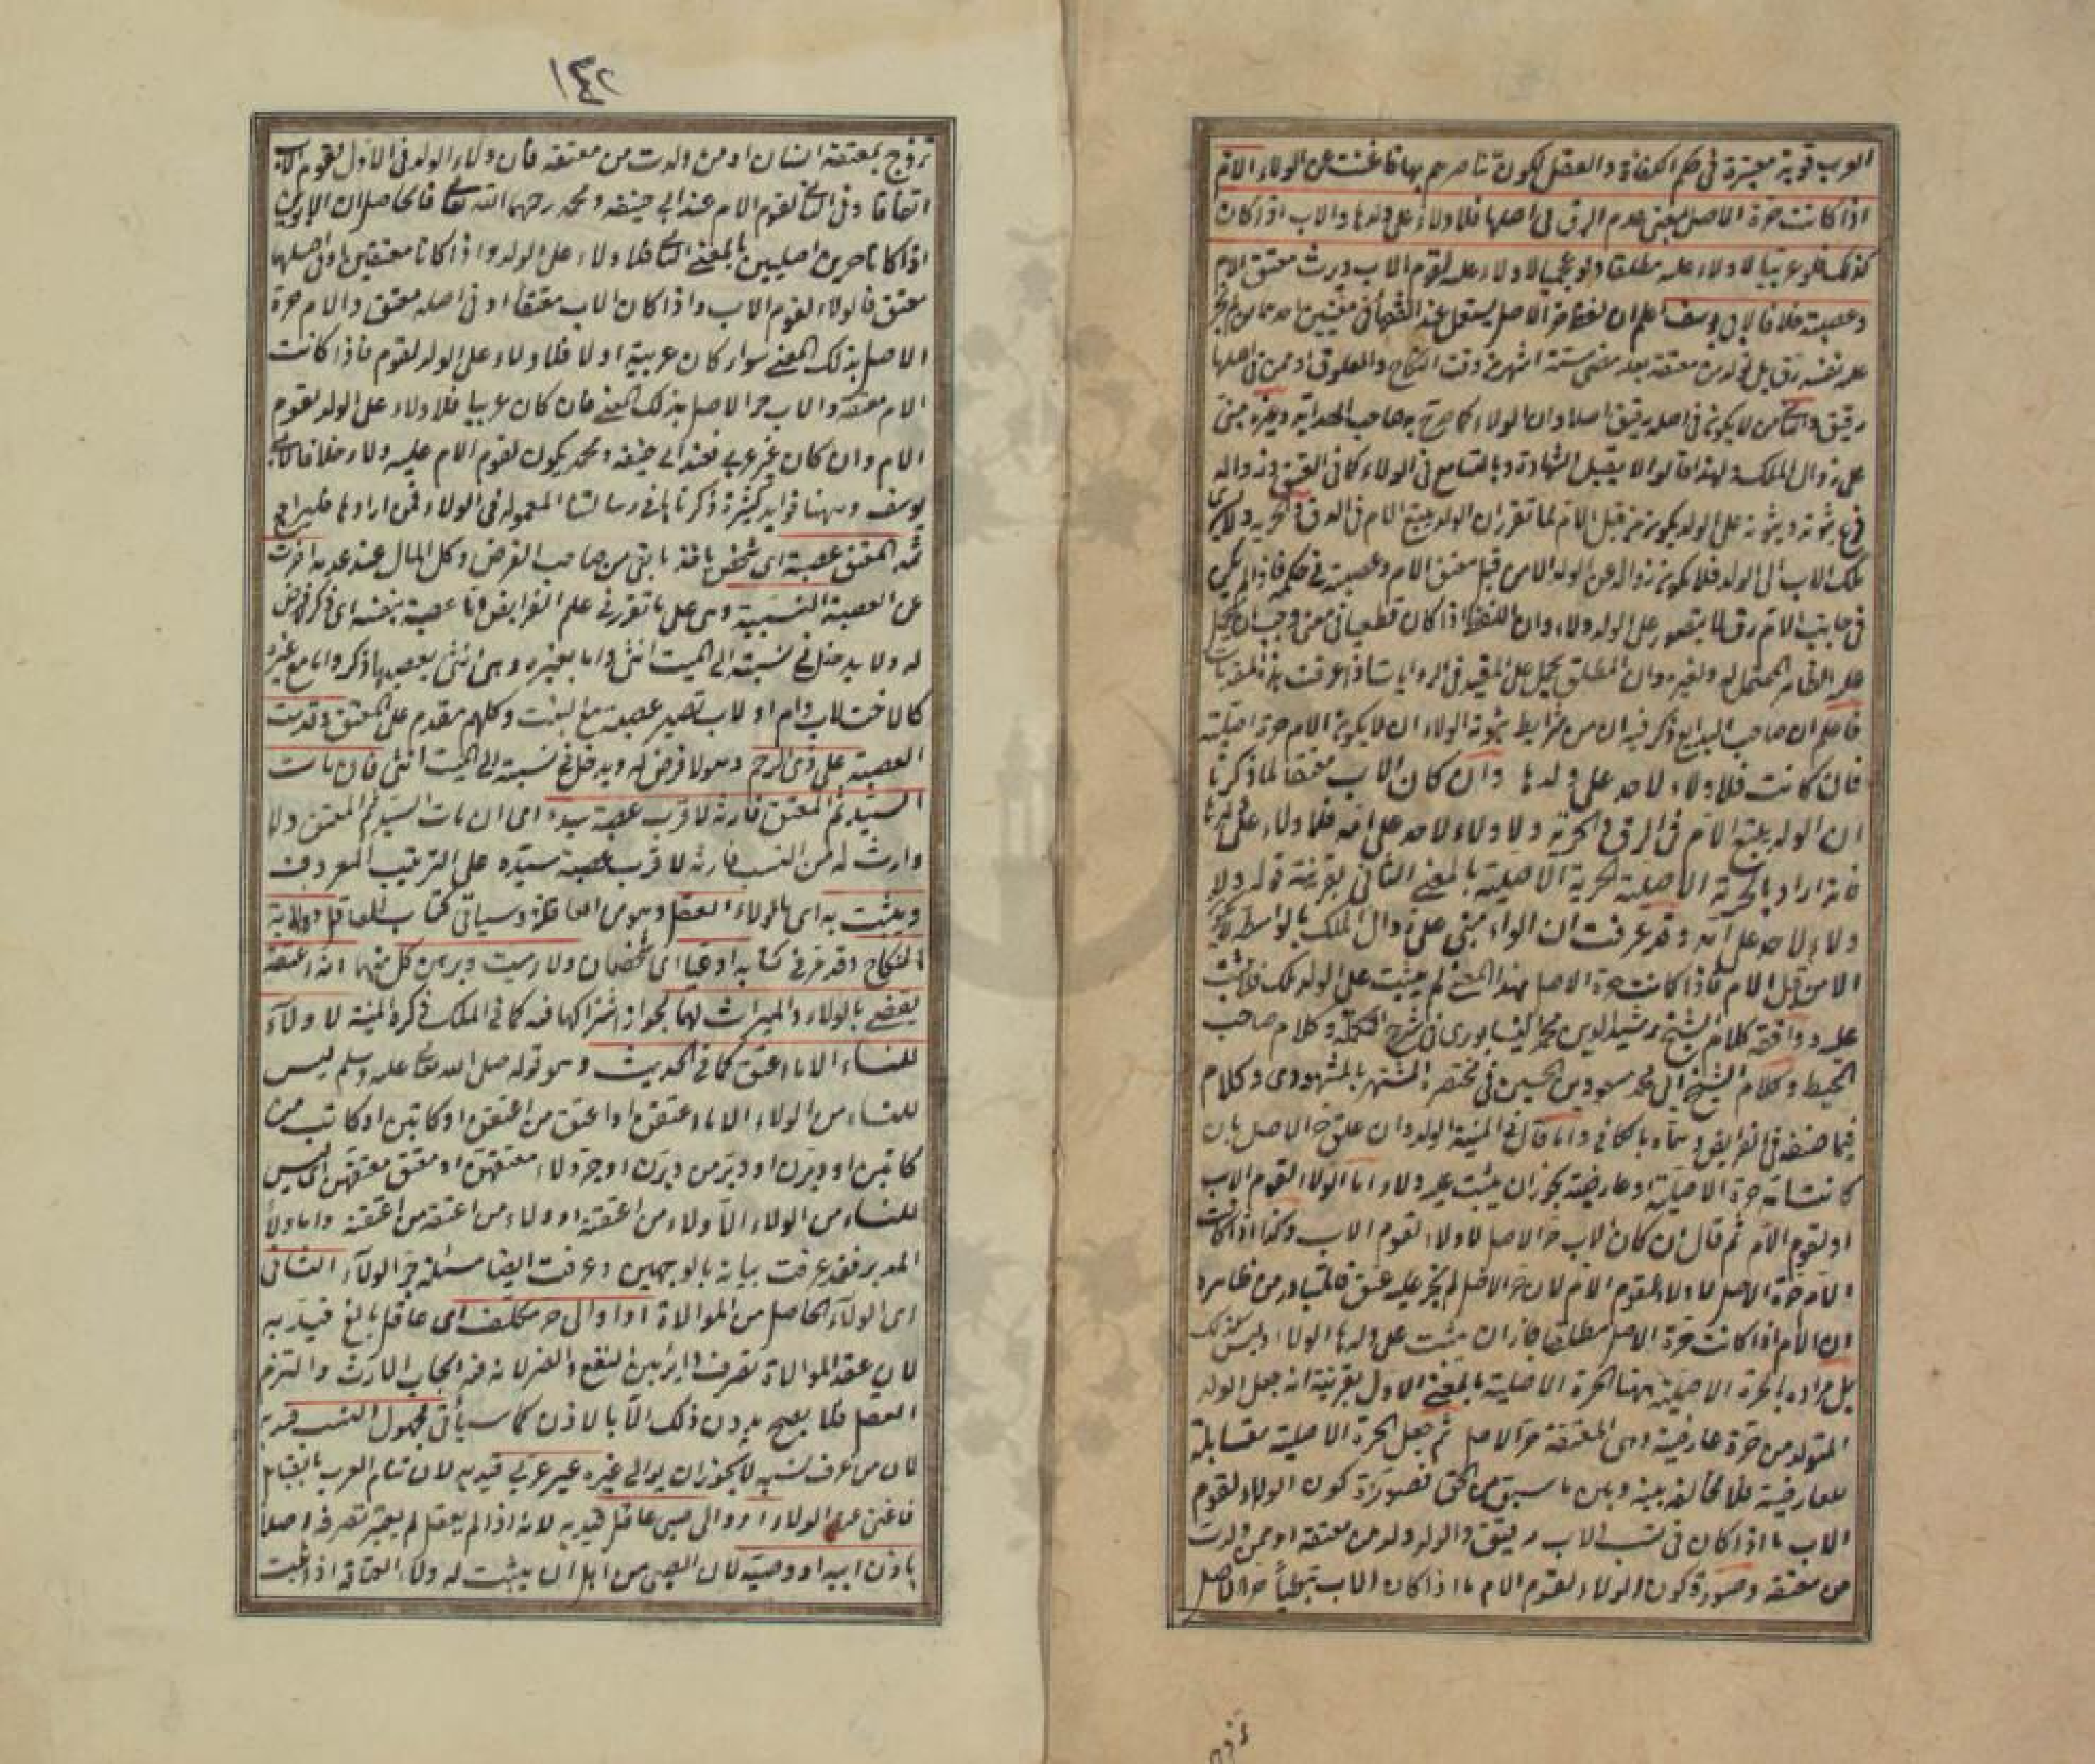 العرب قوية معتبرة في حكم الكفاءة والعقل لكون تناصرهم بها فاغنت عن الولاء الام
اذا كانت حرة الاصل بمعنى عدم الرق في اصلها فلا ولاء على ولدها والاب اذا كان
كذلك فلو عربيا لا ولاء عليه مطلقا ولو عجميا لا ولاء عليه لقوم الاب ويرث معتق الام
وعصبته خلافا لابي يوسف اعلم ان لفظ حر الاصل يستعمل عند الفقهاء في معنيين احدهما من لم يجر
على نفسه رق بل تولد من معتقة بعد مضي ستة اشهر من وقت النكاح والعلوق او ممن في اصلها
رقيق والثاني من لا يكون في اصله رقيق اصلا وان الولاء كما صرح به صاحب الهداية وغيره مبني
على زوال الملك ولهذا قالوا لا يقبل الشهادة وبالتسامع في الولاء كما في العتق وزواله
فرع ثبوته وثبوته على الولد يكون من قبل الام لما تقرر ان الولد يتبع الام في الرق والحرية ولا يسري
ملك الاب الى الولد فلا يكون زواله عن الولد الا من قبل معتق الام وعصبته في حكمه فاذا لم يكن
في جانب الام رق لا يتصور على الولد ولاء وان اللفظ اذا كان قطعيا في معنى وجب ان يحمل
عليه الظاهر المحتمل له ولغيره وان المطلق يحمل على المقيد في الروايات اذا عرفت هذه المقدمات
فاعلم ان صاحب البدايع ذكر فيه ان من شرايط ثبوت الولاء ان لا يكون الام حرة اصلية
فان كانت فلا ولاء لاحد على ولدها وان كان الاب معتقا لما ذكرنا
ان الولد يتبع الام في الرق والحرية ولا ولاء لاحد على امه فلا ولاء على ولدها
فانه اراد بالحرية الاصلية الحرية الاصلية بالمعنى الثاني بقرينة قوله ولا
ولاء لاحد على امه وقد عرفت ان الولاء مبني على زوال الملك بالواسطة
الا من قبل الام فاذا كانت حرة الاصل بهذا المعنى لم يثبت على الولد ملك
عليه ووافقه كلام الشيخ رشيد الدين محمد النيسابوري في شرح التكملة وكلام صاحب
المحيط وكلام الشيخ ابي محمد مسعود بن الحسين في مختصره المشتهر بالمسعودي وكلام
فيما صنفه في الفرايض وسماه بالكافي واما قال في المنية الولد وان علق حر الاصل بان
كانت امه حرة الاصلية او عارضية يجوز ان يثبت عليه ولاء اما الولاء لقوم الاب
او لقوم الام ثم قال ان كان الاب حر الاصل لا ولاء لقوم الاب وكذا اذا كانت
الام حرة الاصل لا ولاء لقوم الام لان حر الاصل لم يجر عليه عتق فالمتبادر من ظاهره
ان الام اذا كانت حرة الاصل مطلقا جاز ان يثبت على ولدها الولاء وليس كذلك
بل مراده بالحرة الاصلية ههنا الحرة الاصلية بالمعنى الاول بقرينة انه جعل الولد
المتولد من حرة عارضية وهي المعتقة حر الاصل ثم جعل الحرة الاصلية مقابلة
للعارضية فلا مخالفة بينه وبين ما سبق من الحق فصورة كون الولاء لقوم
الاب ما اذا كان في نسب الاب رقيق والولد ولد من معتقة او ممن ولدت
من معتقة وصورة كون الولاء لقوم الام ما اذا كان الاب نبطيا حر الاصل
١٤٢
تزوج بمعتقة انسان او من ولدت من معتقة فان ولاء الولد في الاول لقوم الاب
اتفاقا وفي الثاني لقوم الام عند ابي حنيفة ومحمد رحمهما الله تعالى فالحاصل ان الابوين
اذا كانا حرين اصليين بالمعنى الثاني فلا ولاء على الولد واذا كانا معتقين او في اصلهما
معتق فالولاء لقوم الاب واذا كان الاب معتقا او في اصله معتق والام حرة
الاصل بذلك المعنى سواء كان عربية او لا فلا ولاء على الولد لقوم فاذا كانت
الام معتقة والاب حر الاصل بذلك المعنى فان كان عربيا فلا ولاء على الولد لقوم
الام وان كان غير عربي فعند ابي حنيفة ومحمد يكون لقوم الام عليه ولاء خلافا لابي
يوسف وههنا فوايد كثيرة ذكرناها في رسالتنا المعمولة في الولاء فمن ارادها فليراجع
ثمه المعتق عصبة اي شخص ياخذ ما بقي من صاحب الفرض وكل المال عند عدمه اخرت
عن العصبة النسبية وهي على ما تقرر في علم الفرايض اما عصبة بنفسه اي ذكر لا فرض
له ولا يدخل في نسبته الى الميت انثى واما بغيره وهي انثى يعصبها ذكر واما مع غيره
كالاخت لاب وام او لاب تصير عصبة مع البنت وكلهم مقدم على المعتق وقدمت
العصبة على ذي الرحم وهو لا فرض له ويدخل في نسبته الى الميت انثى فان مات
السيد ثم المعتق فارثه لاقرب عصبة سيده اي ان مات السيد ثم المعتق ولا
وارث له من النسب فارثه لاقرب عصبة سيده على الترتيب المعروف
ويثبت به اي بالولاء العقل وهو من العاقلة وسياتي كتاب المعاقل وولاية
النكاح وقد مر في كتابه ادعيا اي شخصان ولاء ميت وبرهن كل منهما انه اعتقه
يقضى بالولاء والميراث لهما لجواز اشتراكهما فيه كما في الملك ذكره في المنية لا ولاء
للنساء الا ما اعتقن كما في الحديث وهو قوله صلى الله تعالى عليه وسلم ليس
للنساء من الولاء الا ما اعتقن او اعتق من اعتقن او كاتبن او كاتب من
كاتبن او دبرن او دبر من دبرن او جر ولاء معتقهن او معتق معتقهن اي ليس
للنساء من الولاء الا ولاء من اعتقنه او ولاء من اعتقه من اعتقنه واما ولاء
المدبر فقد عرفت بيانه بالوجهين وعرفت ايضا مسئلة جر الولاء الثاني
اي الولاء الحاصل من الموالاة اذا والى حر مكلف اي عاقل بالغ قيد به
لان عقد الموالاة تصرف دائر بين النفع والضر لانه فيه ايجاب الارث والتزم
العقل فلا يصح بدون ذلك الا بالاذن كما سيأتي مجهول النسب قيد به
لان من عرف نسبه لا يجوز ان يوالي غيره غير عربي قيد به لان تناصر العرب بالقبايل
فاغنى عن الولاء او والى صبي عاقل قيد به لانه اذا لم يعقل لم يعتبر تصرفه اصلا
باذن ابيه او وصيه لان الصبي من اهل ان يثبت له ولاء العتاقة اذا ثبت
تزوج